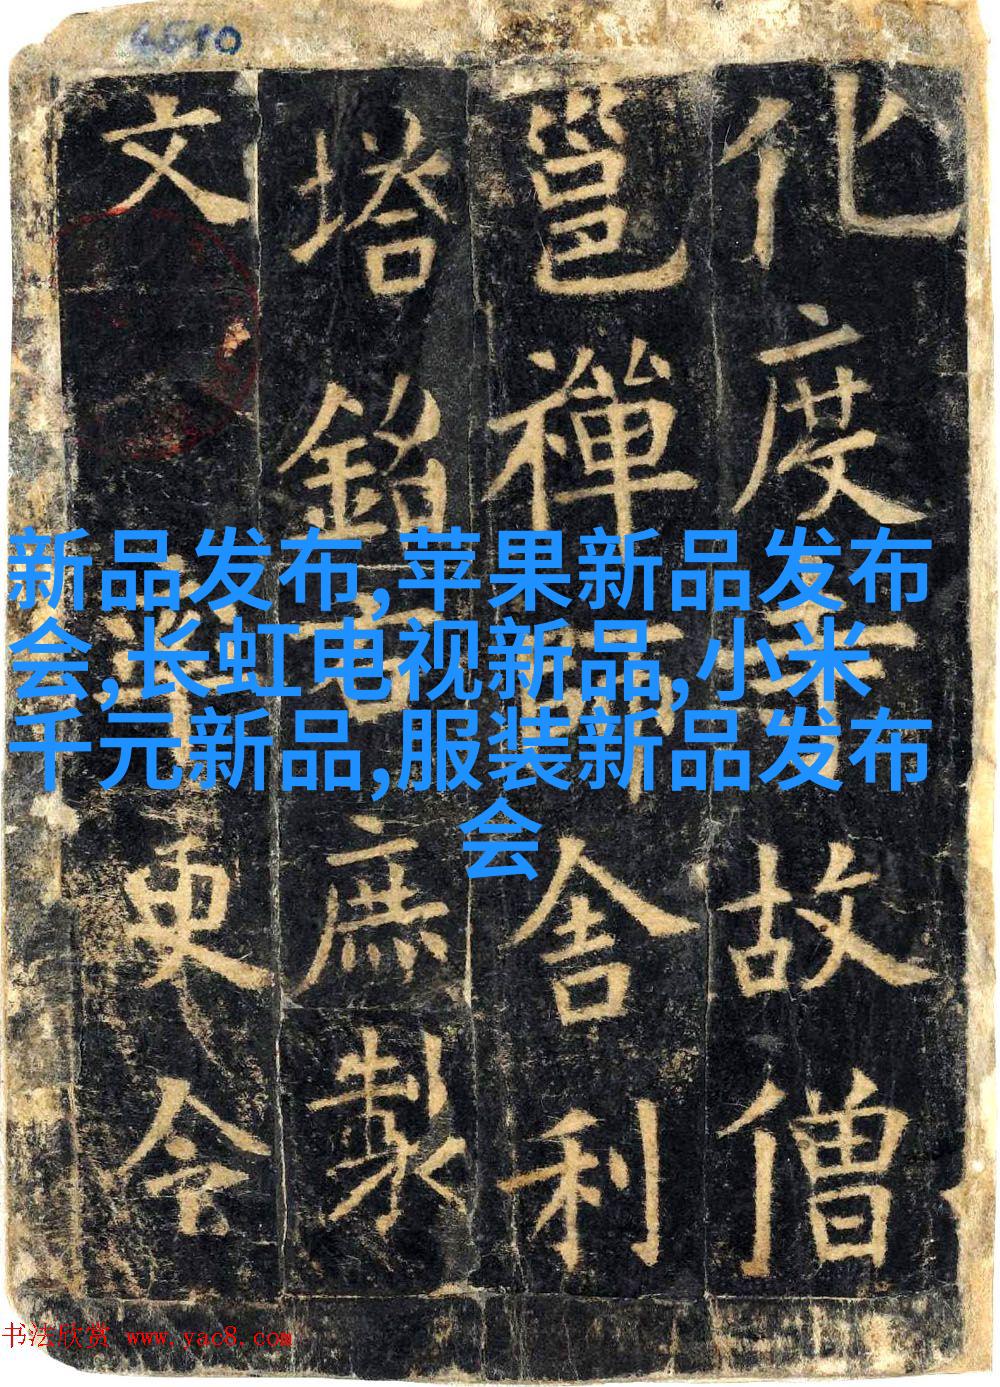 化度寺故僧
邕禪師舍利
塔銘右庶製
文率更令
新品发布,苹果新品发布
会,长虹电视新品,小米
千元新品,服装新品发布
会
书法欣赏 www.yac8.com